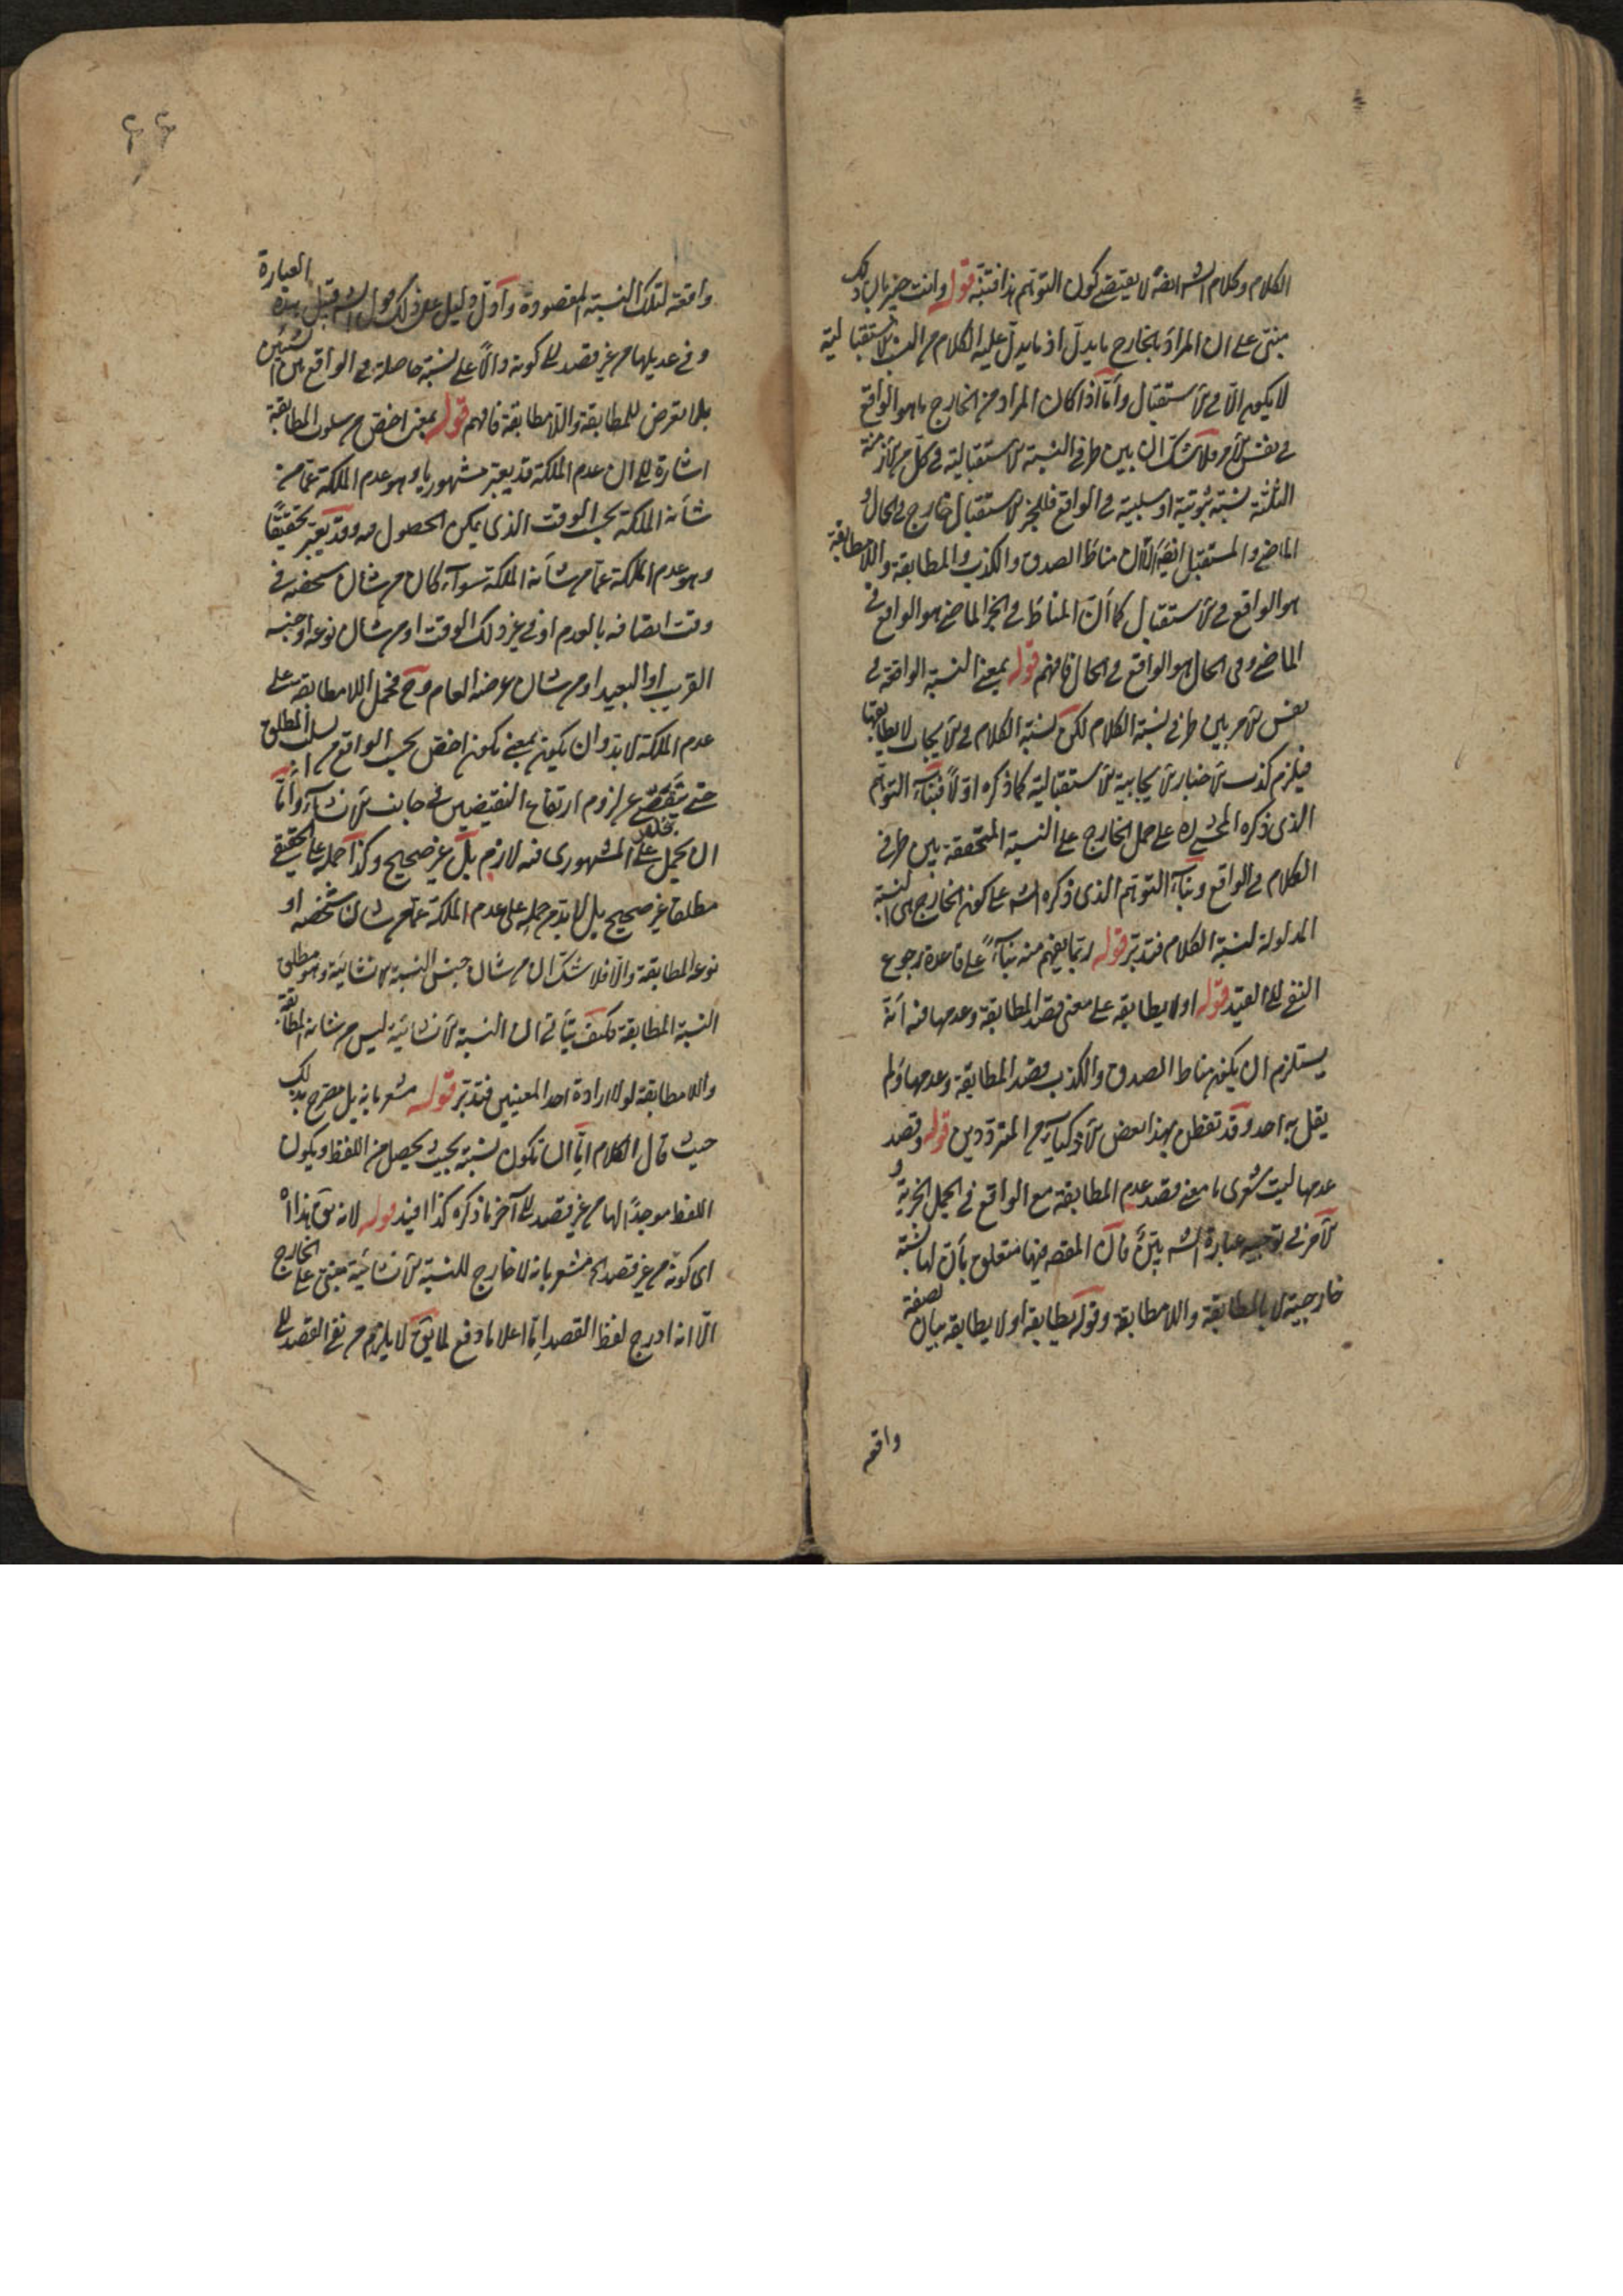 الكلام وكلام الشه ايضا لا يقتضى كون التوهم هذا فتنبه قوله وانت خبير بان ذلك
مبنى على ان المراد بالخارج ما يدل اذ ما يدل عليه الكلام من النسبة الاستقبالية
لا يكون الا فى الاستقبال وأما اذا كان المراد من الخارج ما هو الواقع
فى نفس الامر فلا شك ان بين طرفى النسبة الاستقبالية فى كل من الازمنة
الثلثة نسبة ثبوتية او سلبية فى الواقع فللخبر الاستقبالى خارج فى الحال و
الماضى والمستقبل ايضا الا ان مناط الصدق والكذب والمطابقة واللامطابقة
هو الواقع فى الاستقبال كما أن المناط فى الخبر الماضى هو الواقع فى
الماضى وفى الحال هو الواقع فى الحال فافهم قوله بمعنى النسبة الواقعة فى
نفس الامر بين طرفى نسبة الكلام لكن نسبة الكلام فى الايجاب لا يطابقها
فيلزم كذب الاخبار الايجابية الاستقبالية كما ذكره اولا فبناء التوهم
الذى ذكره المحشى ره على حمل الخارج على النسبة المتحققة بين طرفى
الكلام فى الواقع وبناء التوهم الذى ذكره الشه على كون الخارج هى النسبة
المدلولة لنسبة الكلام فتدبر قوله ربما يفهم منه بناء على قاعدة رجوع
النفى الى القيد قوله او لا يطابقه على معنى قصد المطابقة وعدمها فيه أنه
يستلزم ان يكون مناط الصدق والكذب قصد المطابقة وعدمها ولم
يقل به احد وقد تفطن بهذا بعض الاذكياء من المترددين قوله وقصد
عدمها ليت شعرى ما معنى قصد عدم المطابقة مع الواقع فى الجمل الخبرية و
الآخر فى توجيه عبارة الشه بين فان المقصد فيها متعلق بأن لها نسبة
خارجية لا بالمطابقة واللامطابقة وقوله يطابقه او لا يطابقه بيان لصفة
واقعة
٤٤
واقعة لتلك النسبة المقصودة وأول دليل على ذلك قول الشه قبيل هذه العبارة
وفى عديلها من غير قصد الى كونه دالا على نسبة حاصلة فى الواقع بين الشيئين
بلا تعرض للمطابقة واللامطابقة فافهم قوله بمعنى اخص من سلوب المطابقة
اشارة الى ان عدم الملكة قد يعتبر مشهوريا وهو عدم الملكة عما من
شأنه الملكة بحسب الوقت الذى يمكن الحصول فيه وقد يعتبر تحقيقا
وهو عدم الملكة عما من شأنه الملكة سواء كان من شان شخصه فى
وقت اتصافه بالعدم او فى غير ذلك الوقت او من شان نوعه او جنسه
القريب او البعيد او من شان عرضه العام وح فحمل اللامطابقة على
عدم الملكة لا بد وان يكون بمعنى يكون اخص بحسب الواقع من السلب المطلق
حتى يتفصى عن لزوم ارتفاع النقيضين فى جانب الانشاء وأما
ان يحمل على بخلاف المشهورى فيه لازم بل غير صحيح وكذا حمله على الحقيقى
مطلقا غير صحيح بل لا بد من حمله على عدم الملكة عما من شان شخصه او
نوعه المطابقة والا فلا شك ان من شان جنس النسبة الانشائية وهو مطلق
النسبة المطابقة فكيف يتأتى ان النسبة الانشائية ليس من شانه المطابقة
واللامطابقة لولا ارادة احد المعنيين فتدبر قوله مشعر بانه بل مصرح بذلك
حيث قال الكلام اما ان تكون نسبته بحيث يحصل من اللفظ ويكون
اللفظ موجدا لها من غير قصد الى آخر ما ذكره كذا افيد قوله لانه يق هذا اه
اى كونه من غير قصد الخ مشعر بانه لا خارج للنسبة الانشائية مبنى على الخارج
الا انه ادرج لفظ القصد اما اعلاما دفع لما يق لا يلزم من نفى القصد الى